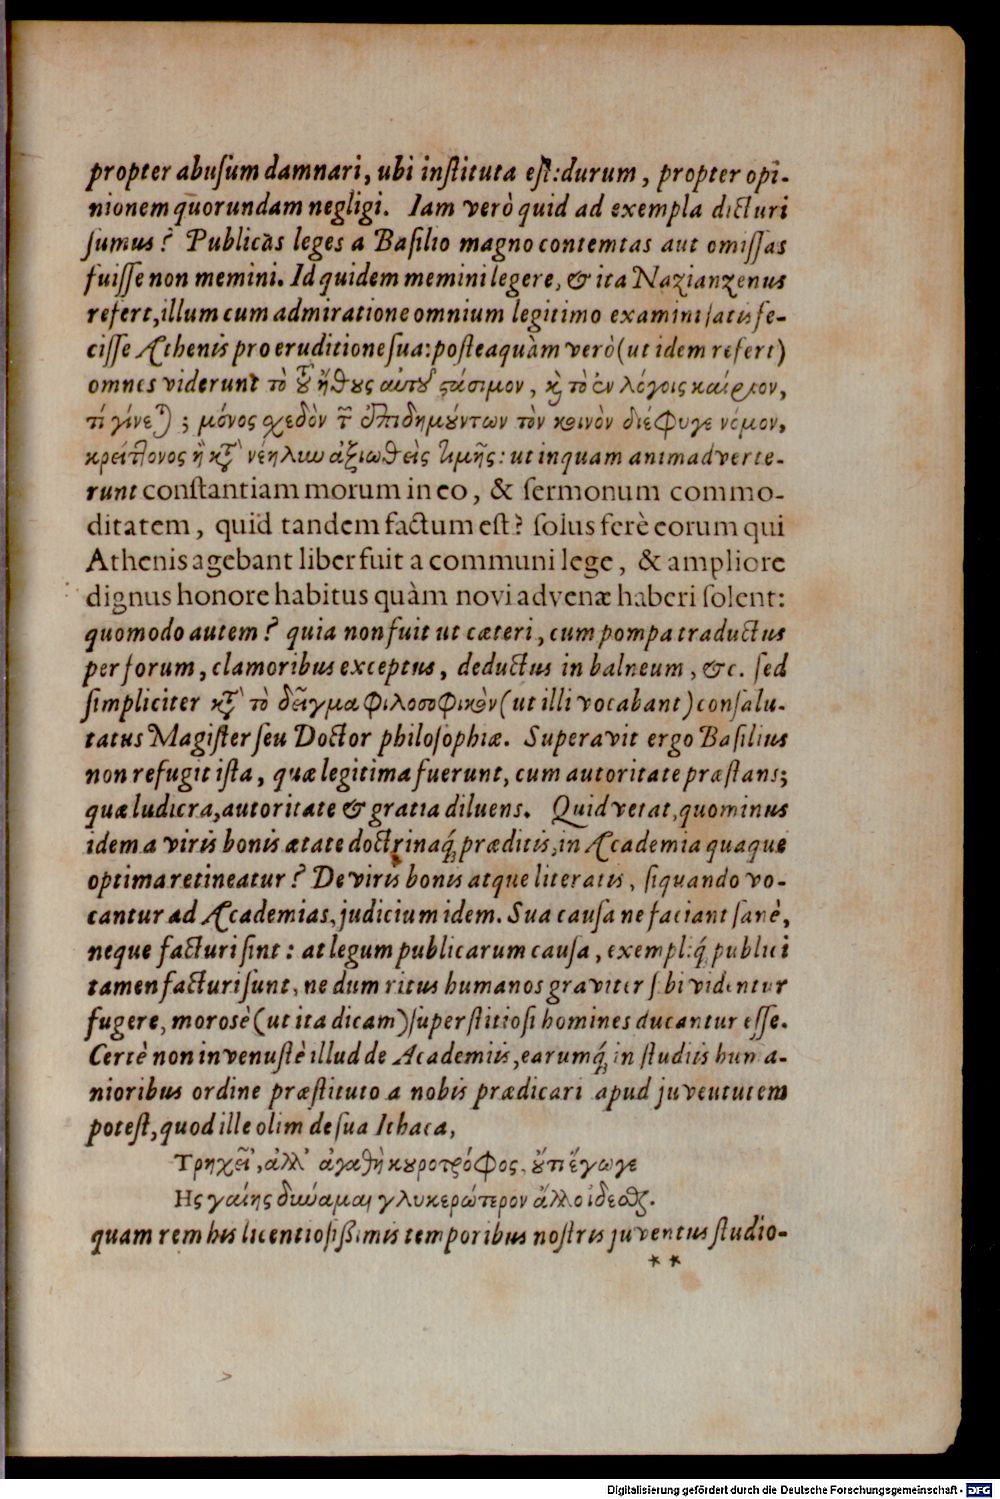 propter abusum damnari, ubi instituta est: durum, propter opi-
nionem quorundam negligi. Iam verò quid ad exempla dicturi
sumus? Publicas leges a Basilio magno contemtas aut omissas
fuisse non memini. Id quidem memini legere, & ita Nazianzenus
refert, illum cum admiratione omnium legitimo examini satis fe-
cisse Athenis pro eruditione sua: posteaquàm verò (ut idem refert)
omnes viderunt τὸ τοῦ ἤθους αὐτοῦ στάσιμον, καὶ τὸ ἐν λόγοις καίριον,
τί γίνεται; μόνος σχεδὸν τῶν ἐπιδημούντων τὸν κοινὸν διέφυγε νόμον,
κρείττονος ἢ κατὰ νέηλυν ἀξιωθεὶς τιμῆς: ut inquam animadverte-
runt constantiam morum in eo, & sermonum commo-
ditatem, quid tandem factum est? solus ferè eorum qui
Athenis agebant liber fuit a communi lege, & ampliore
dignus honore habitus quàm novi advenæ haberi solent:
quomodo autem? quia non fuit ut cæteri, cum pompa traductus
per forum, clamoribus exceptus, deductus in balneum, &c. sed
simpliciter κατὰ τὸ δεῖγμα φιλοσοφικὸν (ut illi vocabant) consalu-
tatus Magister seu Doctor philosophiæ. Superavit ergo Basilius
non refugit ista, quæ legitima fuerunt, cum autoritate præstans;
quæ ludicra, autoritate & gratia diluens. Quid vetat, quominus
idem a viris bonis ætate doctrinaq́; præditis, in Academia quaque
optima retineatur? De viris bonis atque literatis, siquando vo-
cantur ad Academias, judicium idem. Sua causa ne faciant sanè,
neque facturi sint: at legum publicarum causa, exempliq́; publici
tamen facturi sunt, ne dum ritus humanos graviter sibi videntur
fugere, morosè (ut ita dicam) superstitiosi homines ducantur esse.
Certè non invenustè illud de Academiis, earumq́; in studiis huma-
nioribus ordine præstituto a nobis prædicari apud juventutem
potest, quod ille olim de sua Ithaca,
Τρηχεῖ', ἀλλ' ἀγαθὴ κουροτρόφος, οὔτι ἔγωγε
Ης γαίης δύναμαι γλυκερώτερον ἄλλο ἰδέσθαι.
quam rem his licentiosissimis temporibus nostris juventus studio-
**
Digitalisierung gefördert durch die Deutsche Forschungsgemeinschaft - DFG